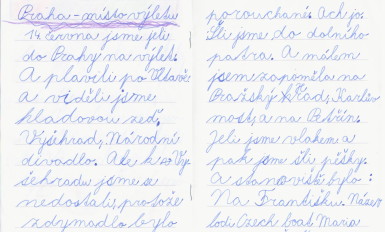 Praha - místo výletu
14. června jsme jeli
do Prahy na výlet.
A plavili po Vltavě
a viděli jsme
hladovou zeď,
Vyšehrad, Národní
divadlo. Ale k Vy
šehradu jsme se
nedostali, protože
zdymadlo bylo
porouchané. Ach jo.
Šli jsme do dolního
patra. A málem
jsem zapoměla na
Pražský hrad, Karlův
most, a na Petřín.
Jeli jsme vlakem a
pak jsme šli pěšky.
A stanoviště bylo:
Na Františku. Název
lodi Czech boat Maria